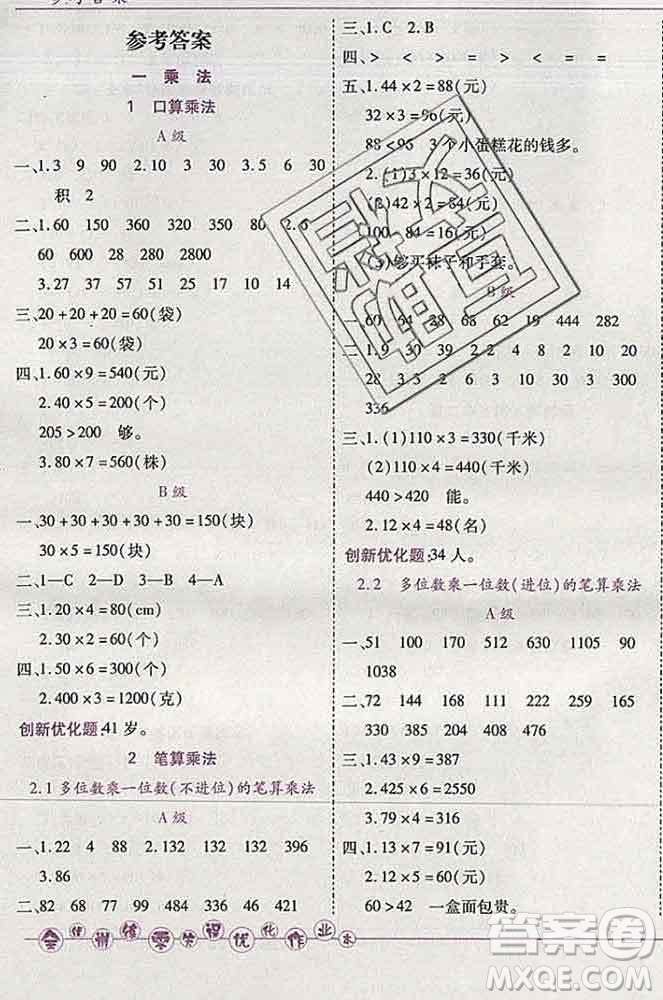 参考答案
一 乘 法
1 口算乘法
A级
一、1.3 9 90 2.10 3 30 3.5 6 30
积 2
二、1.60 150 360 320 350 80 2.6
60 600 28 280 2800
3.27 37 57 51 25 17 10 14
三、20+20+20=60(袋)
20×3=60(袋)
四、1.60×9=540(元)
2.40×5=200(个)
205>200 够。
3.80×7=560(株)
B级
一、30+30+30+30+30=150(块)
30×5=150(块)
二、1—C 2—D 3—B 4—A
三、1.20×4=80(cm)
2.30×2=60(个)
四、1.50×6=300(个)
2.400×3=1200(克)
创新优化题:41岁。
2 笔算乘法
2.1 多位数乘一位数(不进位)的笔算乘法
A级
一、1.22 4 88 2.132 3 132 396
3.86
二、82 68 77 99 484 336 46 421
三、1.C 2.B
四、> < = > < = =
五、1.44×2=88(元)
32×3=96(元)
88<96 3个小蛋糕花的钱多。
2.(1)3×12=36(元)
(2)42×2=84(元)
100-84=16(元)
(3)够买袜子和手套。
B级
一、60 64 28 68 62 19 444 282
二、1.9 30 39 2.2 4 8 2 10 20
28 3.3 5 2 6 10 30 3 300
336
三、1.(1)110×3=330(千米)
(2)110×4=440(千米)
440>410 能。
2.12×4=48(名)
创新优化题:34人。
2.2 多位数乘一位数(进位)的笔算乘法
A级
一、51 100 170 512 630 1105 90
1038
二、72 144 168 438 148 165
330 385 204 520
三、1.43×9=387
2.425×6=2550
3.79×4=316
四、1.13×7=91(元)
2.12×5=60(元)
60>42 一盒面包贵。
优化作业本
答案圈
MXQE.COM